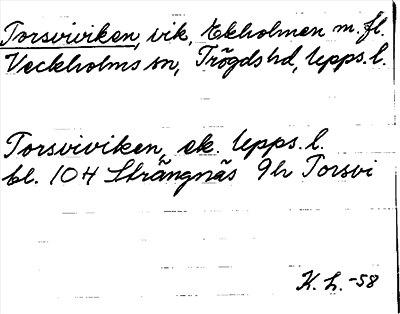 Torsviviken, vik, Ekholmen m.fl.
Veckholms sn, Trögds hd, Upps. l.
Torsviviken ek. Upps. l.
bl. 104 Strängnäs 9h Torsvi
K. L. -58